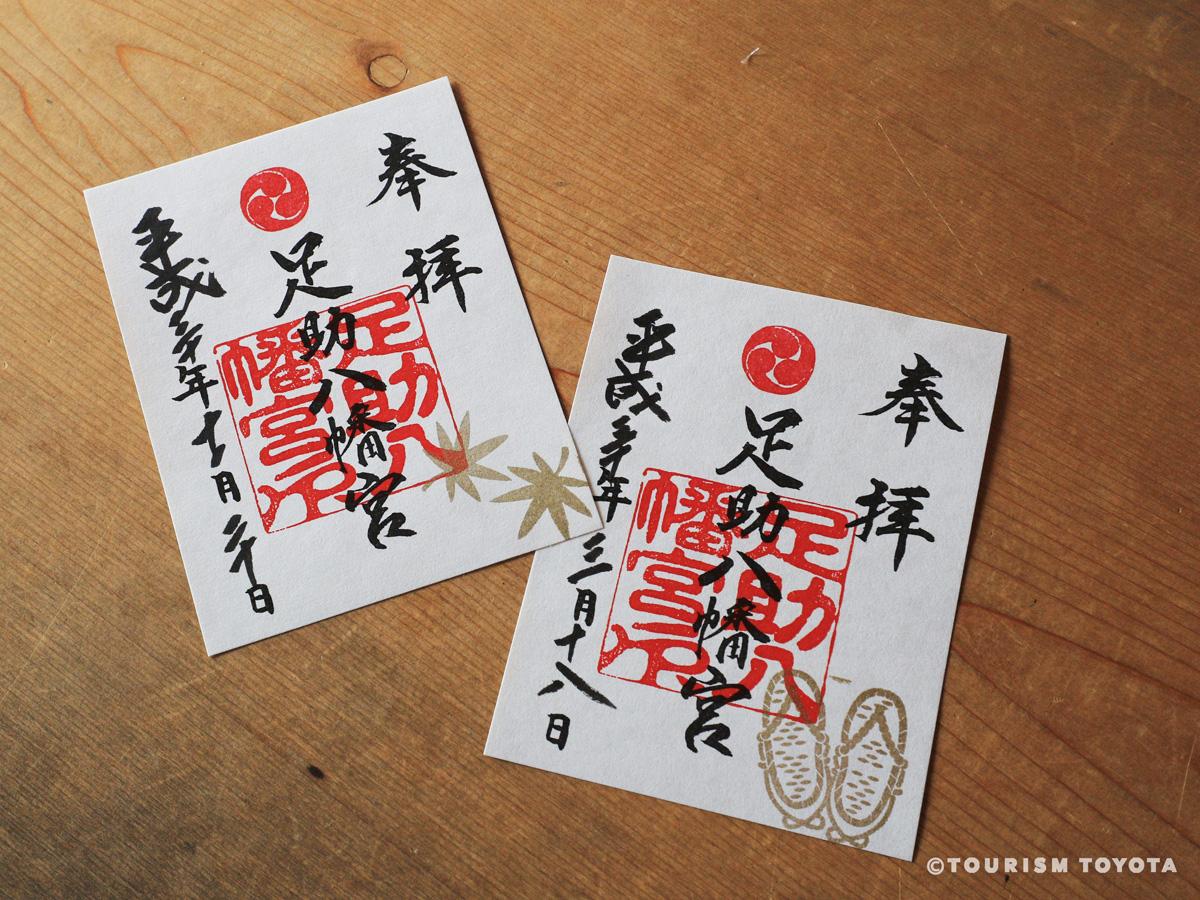 奉拝
足助八幡宮
平成三十年十一月二十日
足助八
幡宮印
奉拝
足助八幡宮
平成三十年三月十八日
足助八
幡宮印
©TOURISM TOYOTA